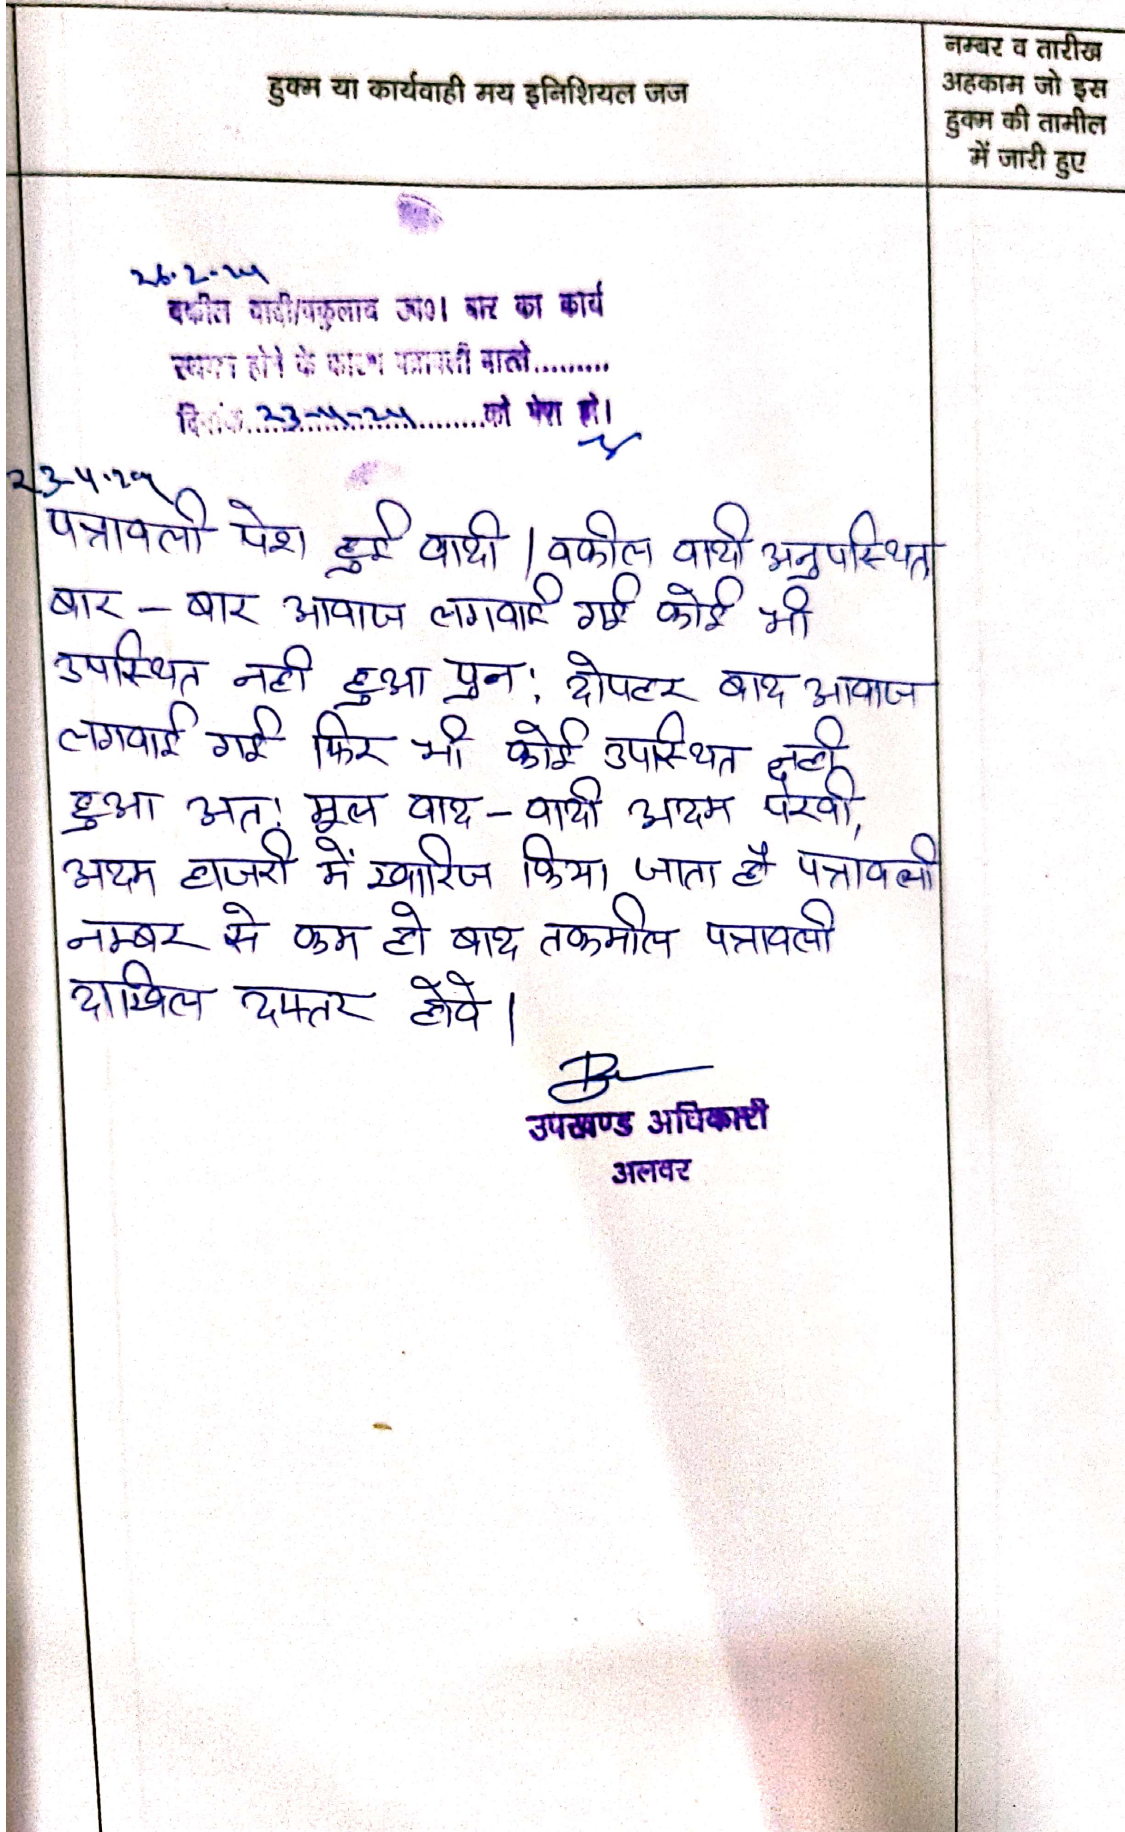 हुक्म या कार्यवाही मय इनिशियल जज
नम्बर व तारीख
अहकाम जो इस
हुक्म की तामील
में जारी हुए
26.2.24
वकील वादी/वकुलाय उप0। बार का कार्य
स्थगन होने के कारण पत्रावली वास्ते.........
दिनांक 23-4-24 को पेश हो।
23-4-24
पत्रावली पेश हुई वादी / वकील वादी अनुपस्थित
बार - बार आवाज लगवाई गई कोई भी
उपस्थित नही हुआ पुन: दोपहर बाद आवाज
लगवाई गई फिर भी कोई उपस्थित नही
हुआ अत: मूल वाद - वादी अदम पेरवी,
अदम हाजरी में खारिज किया जाता है पत्रावली
नम्बर से कम हो बाद तकमील पत्रावली
दाखिल दफ्तर होवे |
उपखण्ड अधिकारी
अलवर